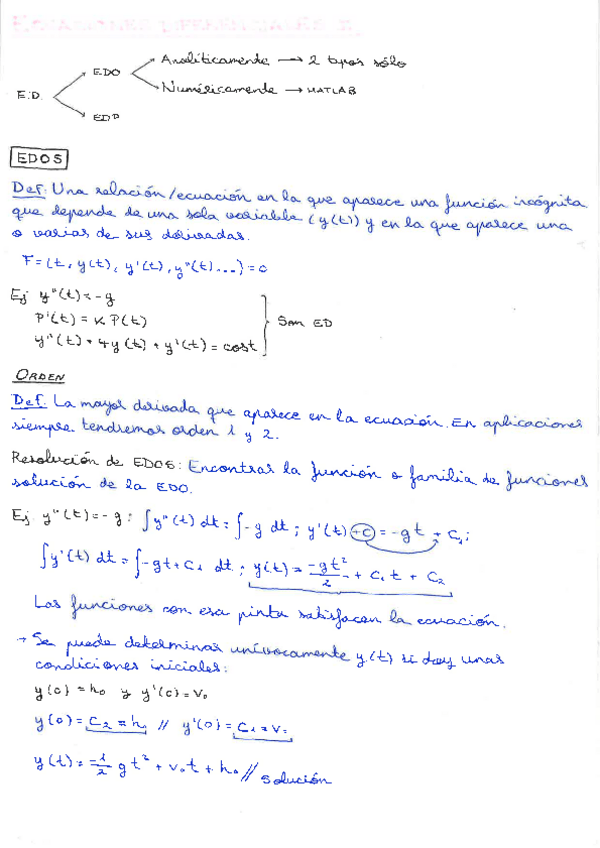 ECUACIONES DIFERENCIALES
E.D. EDO Analíticamente → 2 tipos sólo
Numéricamente → MATLAB
EDP
EDOS
Def: Una relación/ecuación en la que aparece una función incógnita
que depende de una sola variable (y(t)) y en la que aparece una
o varias de sus derivadas.
F=(t, y(t), y'(t), y''(t)...)=0
Ej y''(t)=-g
P'(t)=K P(t)
y''(t)+4y(t)+y'(t)=cost
Son ED
ORDEN
Def. La mayor derivada que aparece en la ecuación. En aplicaciones
siempre tendremos orden 1 y 2.
Resolución de EDOS: Encontrar la función o familia de funciones
solución de la EDO.
Ej y''(t)=-g: ∫y''(t) dt=∫-g dt; y'(t)+C=-gt+C₁;
∫y'(t) dt=∫-gt+C₁ dt; y(t)=-gt²/2+C₁t+C₂
Las funciones con esa pinta satisfacen la ecuación.
→ Se puede determinar unívocamente y(t) si doy unas
condiciones iniciales:
y(0)=h₀ y y'(0)=V₀
y(0)=C₂=h₀ // y'(0)=C₁=V₀
y(t)=-1/2 gt²+V₀t+h₀// solución